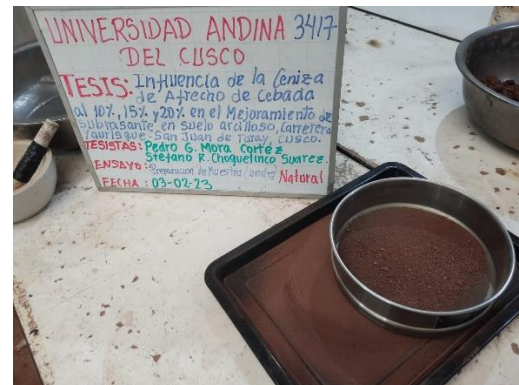 UNIVERSIDAD ANDINA 3417
DEL CUSCO
TESIS: Influencia de la Ceniza
de Afrecho de Cebada
al 10%, 15% y 20% en el Mejoramiento de
Subrasante, en suelo arcilloso, Carretera
Yaurisque - San Juan de Taray, Cusco.
TESISTAS: Pedro G. Mora Cortéz
Stefano R. Choquelinco Suarez.
ENSAYO: Preparación de Muestra Natural
FECHA: 03-02-23